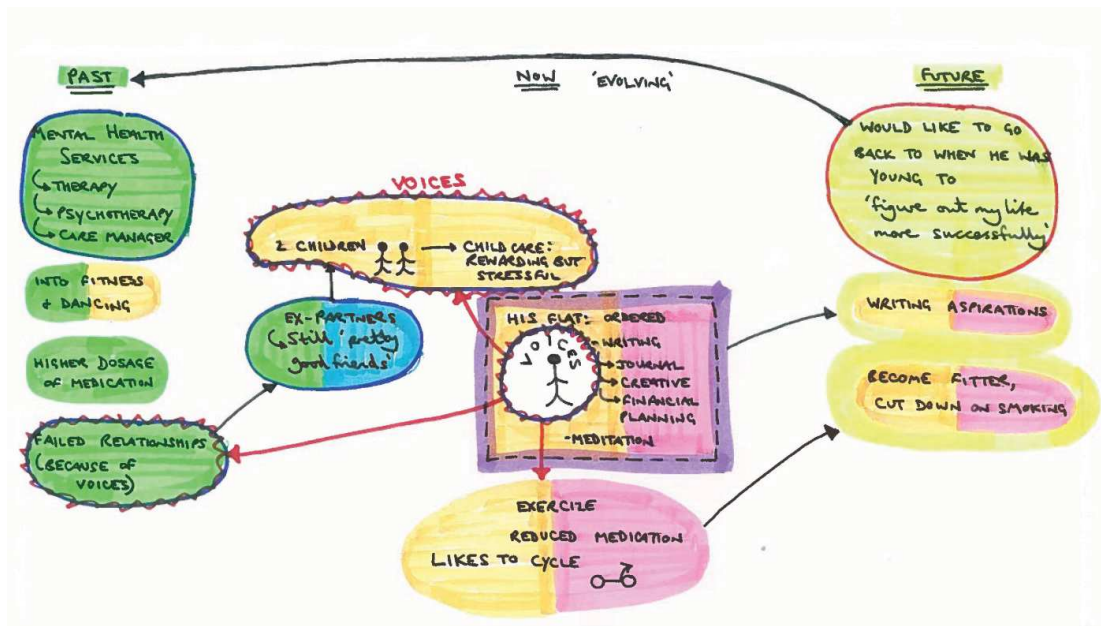 PAST
NOW 'EVOLVING'
FUTURE
MENTAL HEALTH
SERVICES
THERAPY
PSYCHOTHERAPY
CARE MANAGER
INTO FITNESS
+ DANCING
HIGHER DOSAGE
OF MEDICATION
FAILED RELATIONSHIPS
(BECAUSE OF
VOICES)
VOICES
2 CHILDREN
CHILDCARE:
REWARDING BUT
STRESSFUL
EX-PARTNERS
Still 'pretty
good friends'
HIS FLAT: ORDERED
VOICES
-WRITING
JOURNAL
CREATIVE
FINANCIAL
PLANNING
-MEDITATION
EXERCIZE
REDUCED MEDICATION
LIKES TO CYCLE
WOULD LIKE TO GO
BACK TO WHEN HE WAS
YOUNG TO
'figure out my life
more successfully'
WRITING ASPIRATIONS
BECOME FITTER,
CUT DOWN ON SMOKING